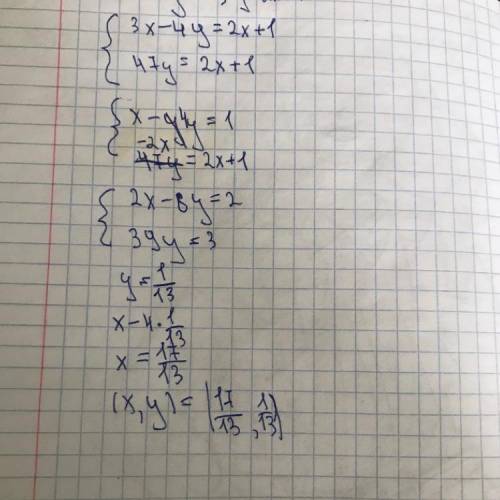 3x-4y=2x+1
47y=2x+1
x-4y=1
-2x
47y=2x+1
2x-8y=2
39y=3
y=1/13
x-4·1/13
x=17/13
(x,y)=(17/13,1/13)